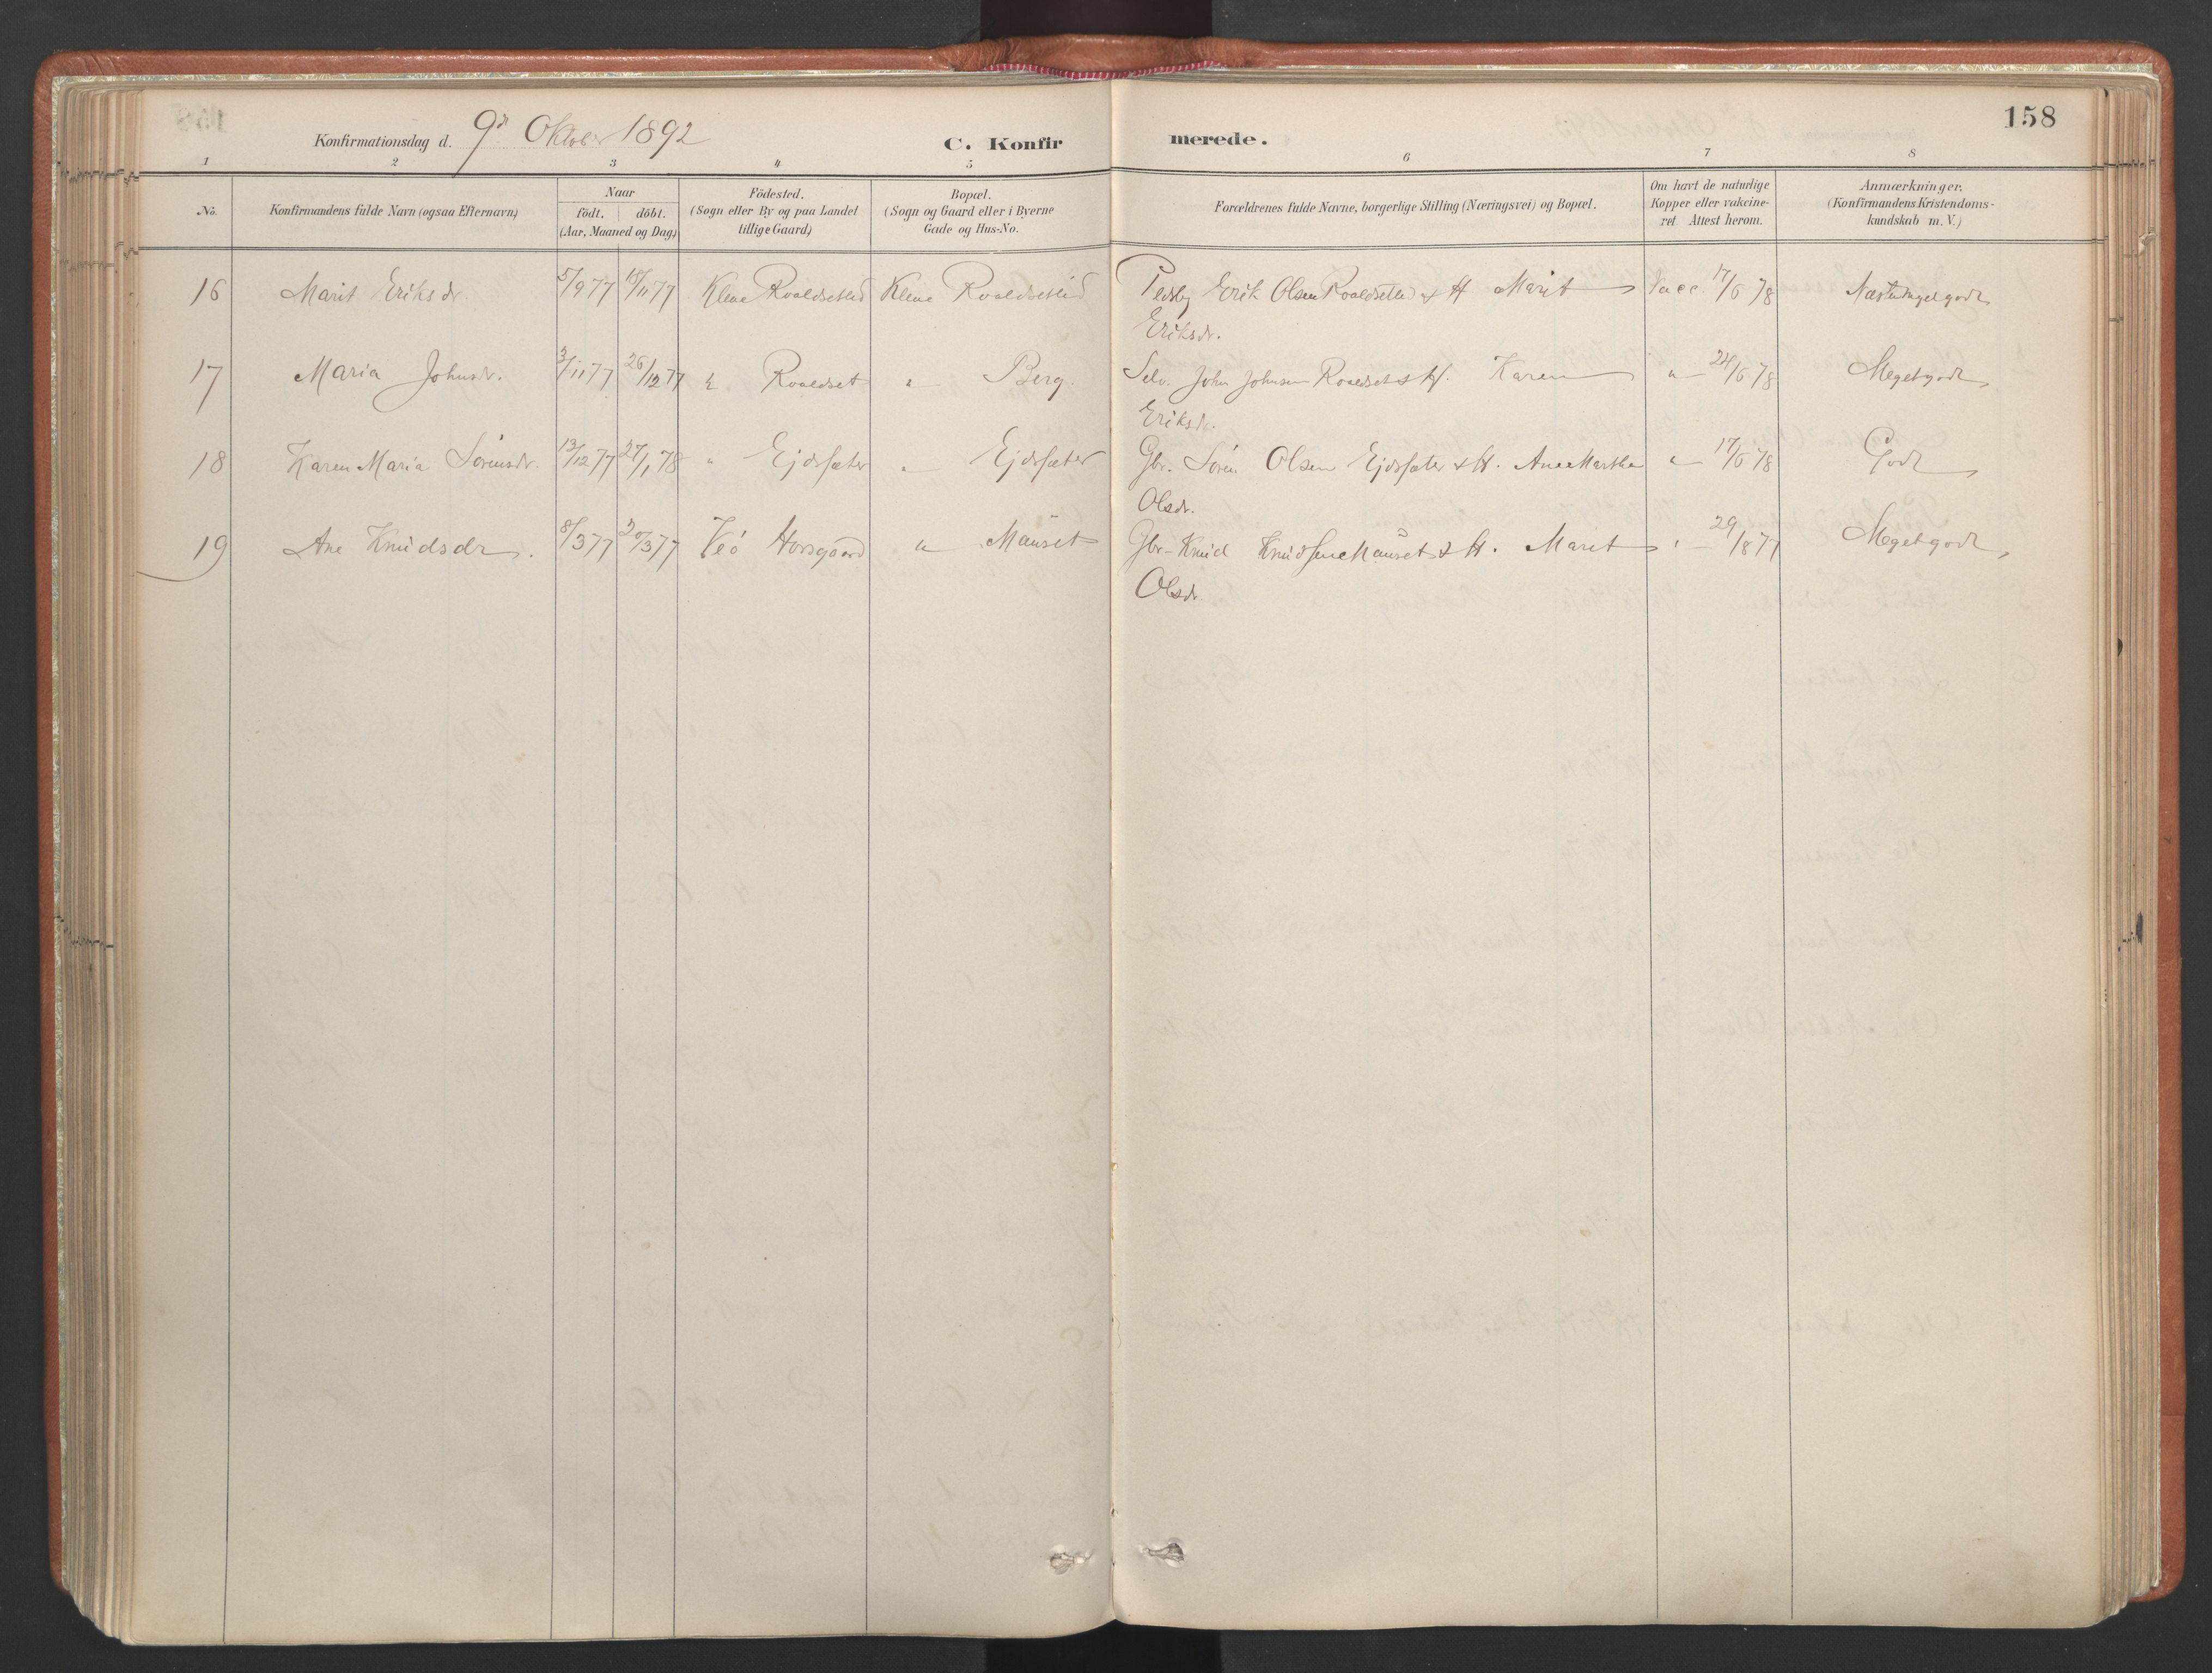 158
Konfirmationsdag d. 9de Oktober 1892
C. Konfirmerede.
1 2 3 4 5 6 7 8
No.
Konfirmandens fulde Navn (ogsaa Efternavn)
Naar
födt. döbt.
(Aar, Maaned og Dag)
Födested.
(Sogn eller By og paa Landet
tillige Gaard)
Bopæl.
(Sogn og Gaard eller i Byerne
Gade og Hus-No.
Forældrenes fulde Navne, borgerlige Stilling (Næringsvei) og Bopæl.
Om havt de naturlige
Kopper eller vakcine-
ret. Attest herom.
Anmærkninger.
(Konfirmandens Kristendoms-
kundskab m. V.)
16 Marit Eriksdr. 5/9 77 18/11 77 Kleve Roaldsetlid Kleve Roaldsetlid Erik Olsen Roaldsetlid & H Marit Vacc. 17/6 78 Næstenmegetgodt
Eriksdr.
17 Maria Johnsdr. 3/11 77 26/12 77 " Roaldset " Berg. Selv. John Johnsen Roaldset & H. Karen " 24/6 78 Megetgodt
Eriksdr.
18 Karen Maria Sörensdr. 13/12 77 27/1 78 " Ejdsæter " Ejdsæter Gbr. Sörен Olsen Ejdsæter & H. Ane Martha " 17/6 78 Godt
Olsdr.
19 Ane Knudsdr. 8/3 77 30/3 77 Veö Horsgaard " Mauset Gbr. Knud Knudsen Mauset & H. Marit " 29/8 77 Megetgodt,
Olsdr.